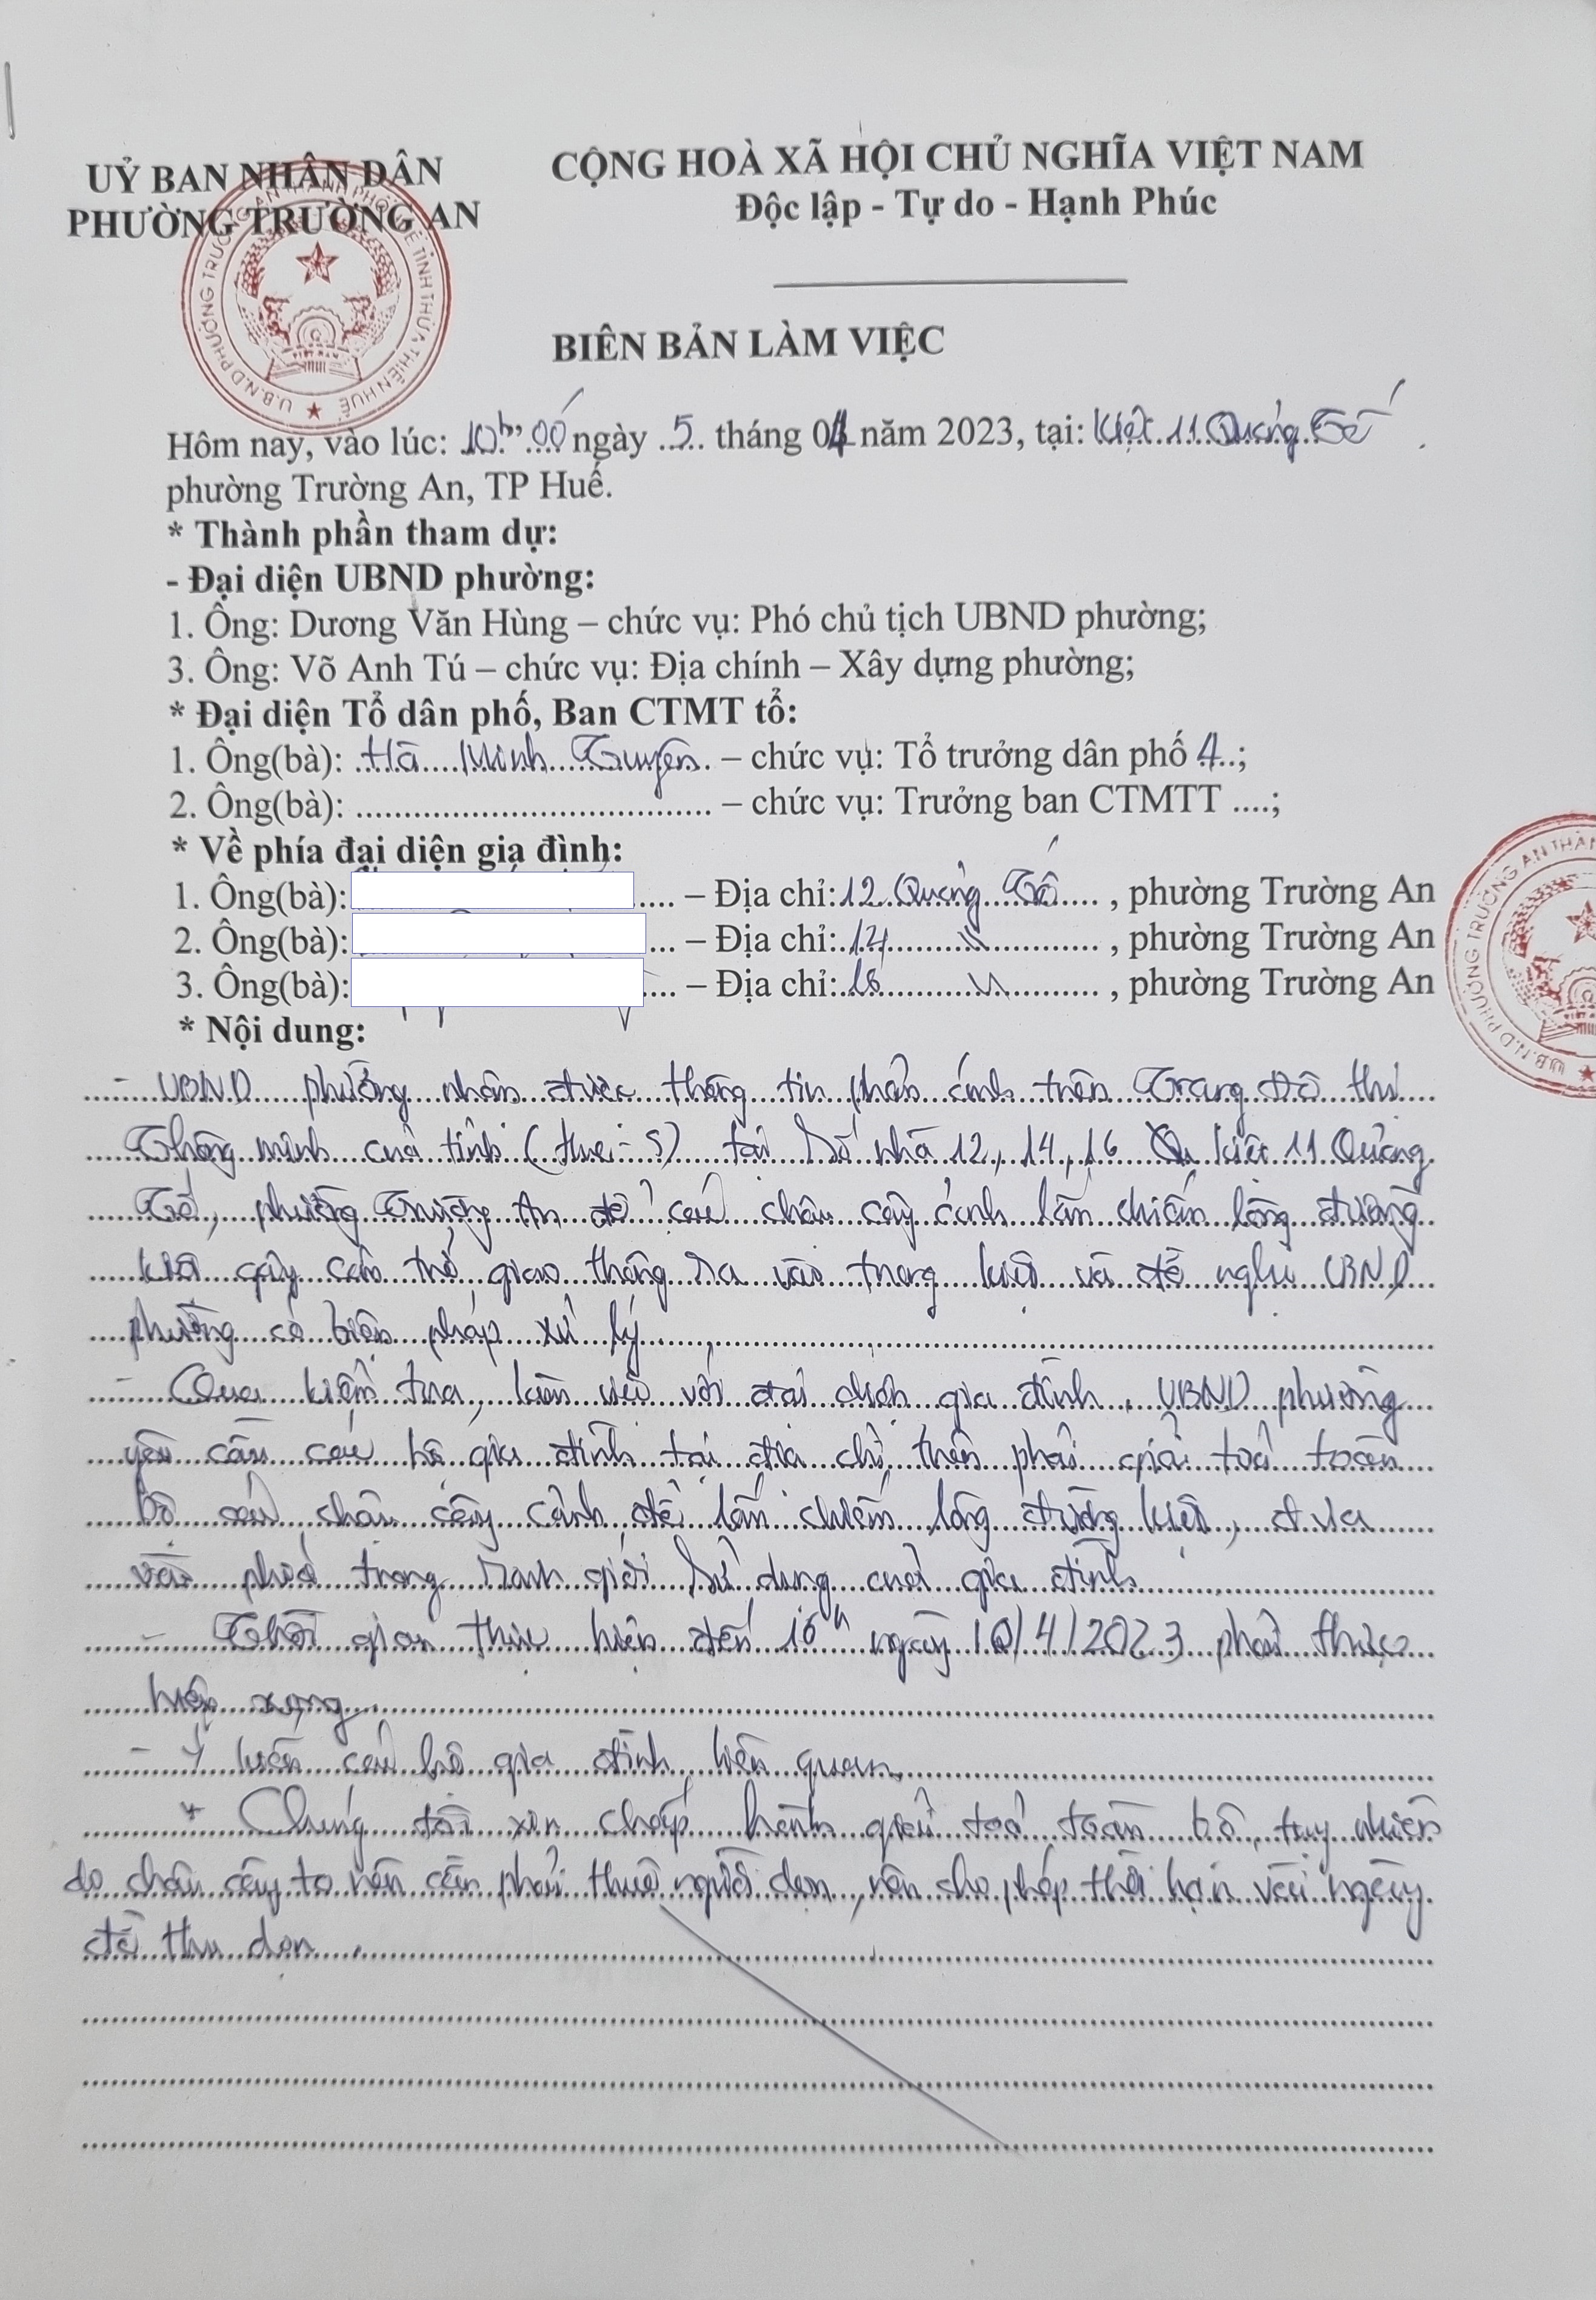 UỶ BAN NHÂN DÂN
PHƯỜNG TRƯỜNG AN
CỘNG HOÀ XÃ HỘI CHỦ NGHĨA VIỆT NAM
Độc lập - Tự do - Hạnh Phúc
BIÊN BẢN LÀM VIỆC
Hôm nay, vào lúc: 10h 00 ngày 5 tháng 04 năm 2023, tại: Kiệt 11 Quảng Tế
phường Trường An, TP Huế.
* Thành phần tham dự:
- Đại diện UBND phường:
1. Ông: Dương Văn Hùng – chức vụ: Phó chủ tịch UBND phường;
3. Ông: Võ Anh Tú – chức vụ: Địa chính – Xây dựng phường;
* Đại diện Tổ dân phố, Ban CTMT tổ:
1. Ông(bà): Hà Minh Truyền – chức vụ: Tổ trưởng dân phố 4..;
2. Ông(bà): ...................................... – chức vụ: Trưởng ban CTMTT ....;
* Về phía đại diện gia đình:
1. Ông(bà): .... – Địa chỉ: 12 Quảng Tế .... , phường Trường An
2. Ông(bà): ... – Địa chỉ: 14 " , phường Trường An
3. Ông(bà): .... – Địa chỉ: 16 " , phường Trường An
* Nội dung:
- UBND phường nhận được thông tin phản ánh trên Trang Đô thị
Thông minh của tỉnh (Hue-S) tại số nhà 12, 14, 16 kiệt 11 Quảng
Tế, phường Trường An để các chậu cây cảnh lấn chiếm lòng đường
kiệt gây cản trở giao thông ra vào trong kiệt và đề nghị UBND
phường có biện pháp xử lý.
- Qua kiểm tra, làm việc với đại diện gia đình, UBND phường
yêu cầu các hộ gia đình tại địa chỉ trên phải giải toả toàn
bộ các chậu cây cảnh để lấn chiếm lòng đường kiệt, đưa
vào phía trong ranh giới sử dụng của gia đình.
- Thời gian thực hiện đến 16h ngày 10/4/2023 phải thực
hiện xong.
- Ý kiến các hộ gia đình liên quan.
+ Chúng tôi xin chấp hành giải toả toàn bộ, tuy nhiên
do chậu cây to nên cần phải thuê người dọn, nên cho phép thời hạn vài ngày
để thu dọn.
U.B.N.D PHƯỜNG TRƯỜNG AN THÀNH PHỐ HUẾ TỈNH THỪA THIÊN HUẾ
VIỆT NAM
U.B.N.D PHƯỜNG TRƯỜNG AN THÀN